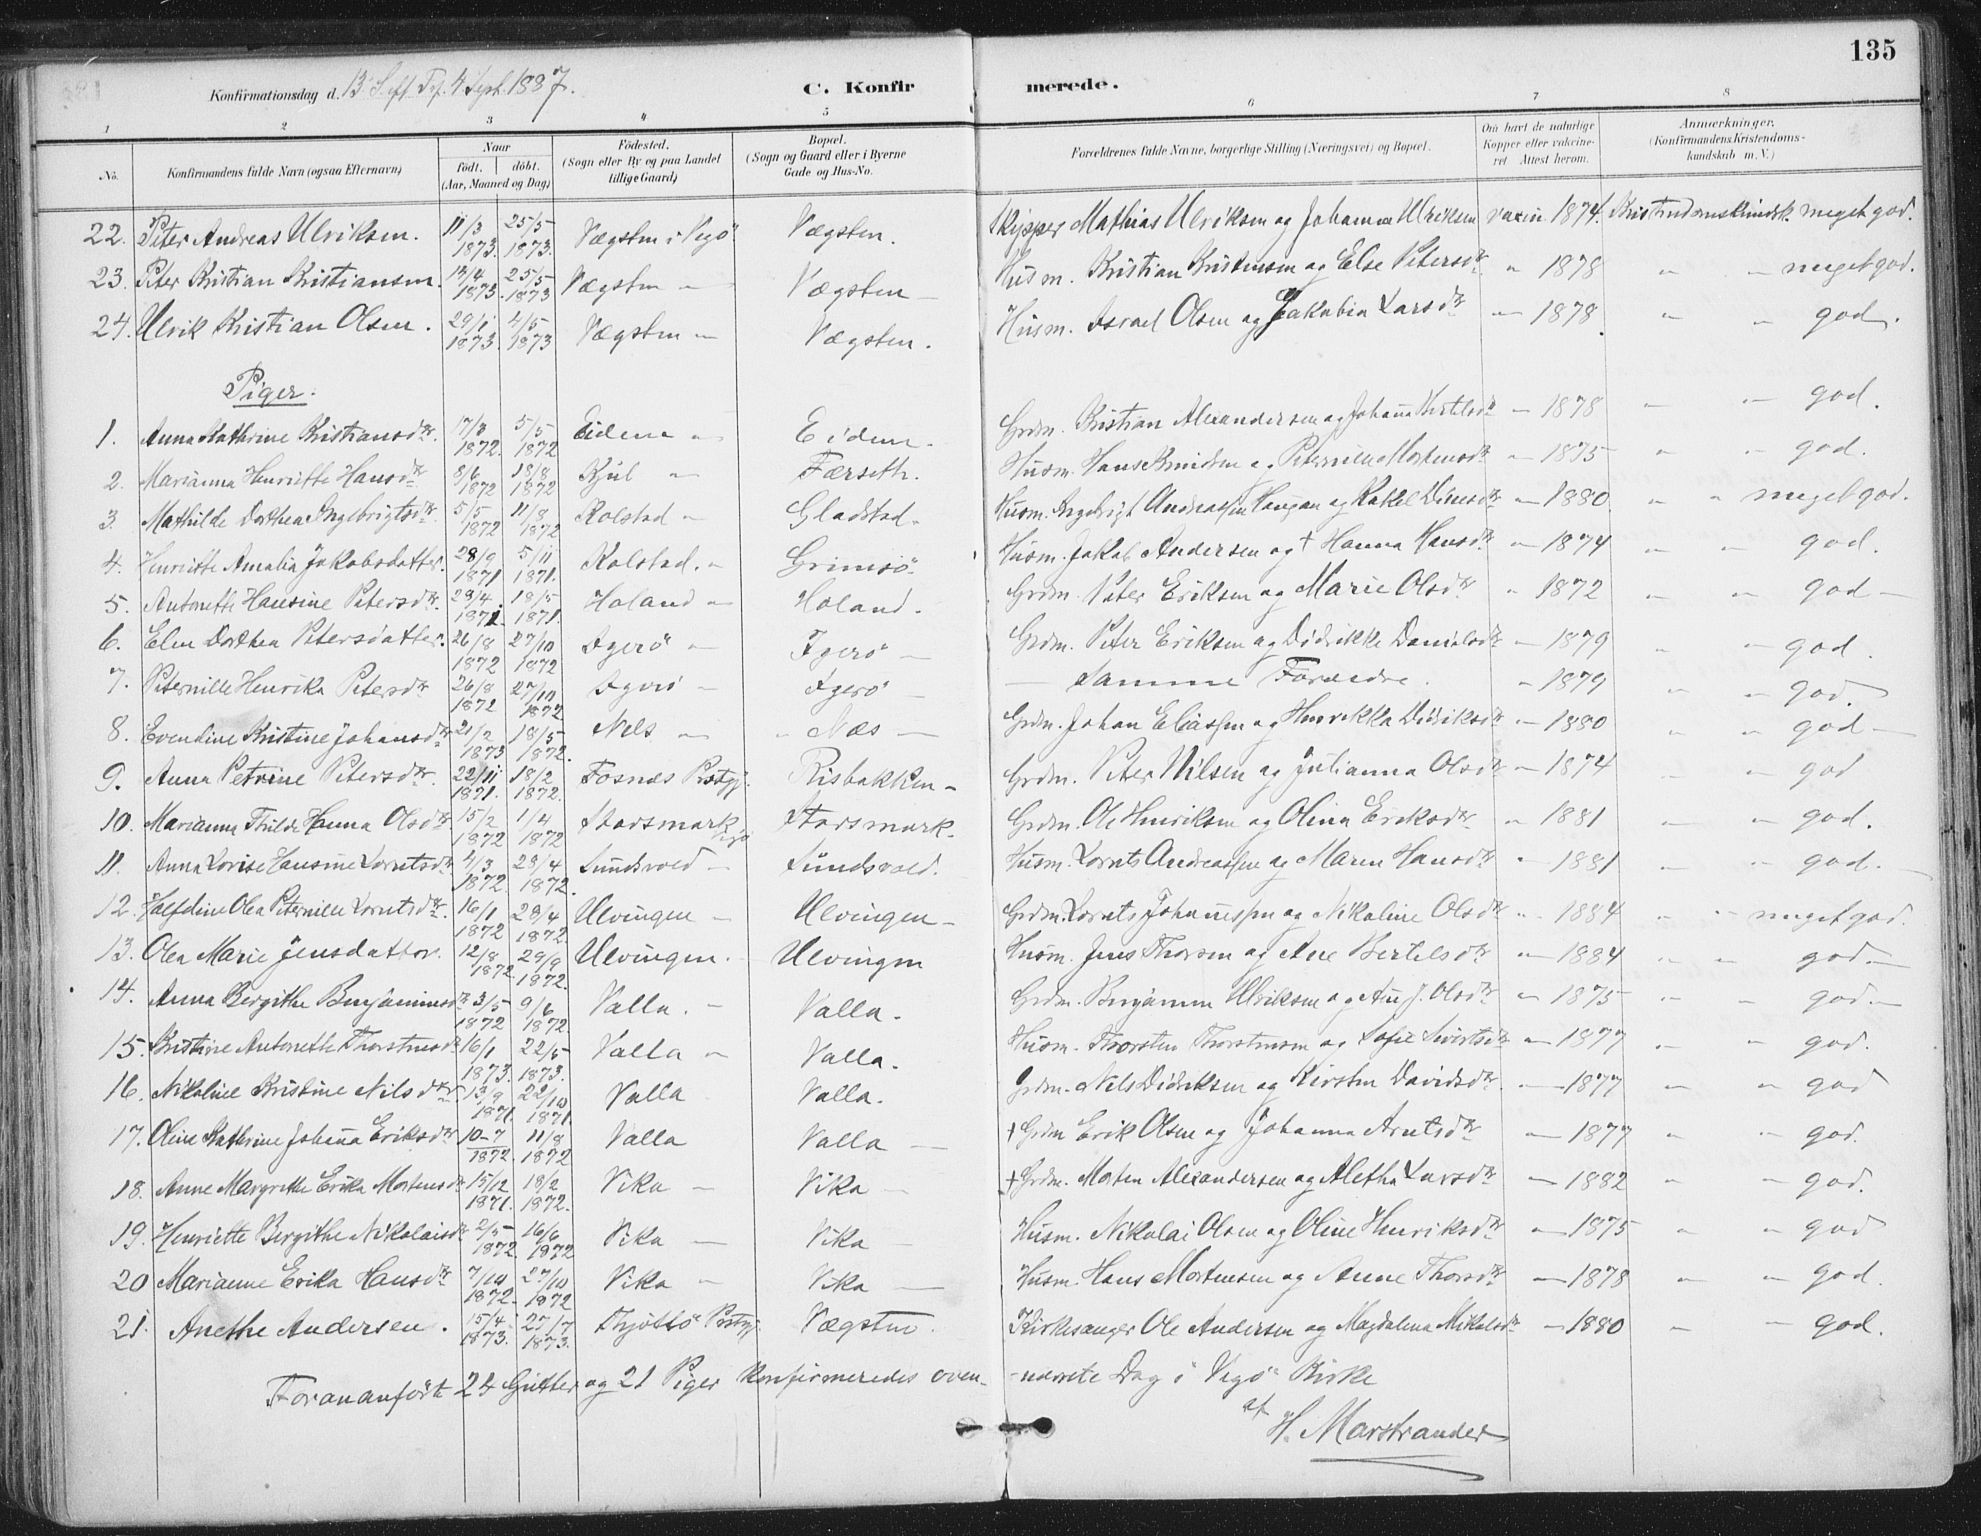 135
Konfirmationsdag d. 13 S. eft. Tref. 4 Sept. 1887.
C. Konfirmerede.
1 2 3 4 5 6 7 8
No.
Konfirmandens fulde Navn (ogsaa Efternavn)
Naar
født. døbt.
(Aar, Maaned og Dag)
Fødested.
(Sogn eller By og paa Landet
tillige Gaard)
Bopæl.
(Sogn og Gaard eller i Byerne
Gade og Hus-No.
Forældrenes fulde Navne, borgerlige Stilling (Næringsvei) og Bopæl.
Om havt de naturlige
Kopper eller vakcine-
ret Attest herom.
Anmærkninger.
(Konfirmandens Kristendoms-
kundskab m. V.)
22. Peter Andreas Ulriksen. 11/3 1873. 25/5 1873. Vægsten i Vegö Vægsten. Skipper Mathias Ulriksen og Johanna Ulriksen vaccin. 1874. Kristendomskundsk. meget god.
23. Peter Kristian Kristiansen. 13/4 1873. 25/5 1873 Vægsten — Vægsten — Husm. Kristian Kristensen og Else Petersdtr " 1878 " " meget god.
24. Ulrik Kristian Olsen. 29/1 1873. 4/5 1873 Vægsten — Vægsten. Husm. Israel Olsen og Jakobia Larsdtr — 1878 " " god.
Piger.
1. Anna Kathrine Kristiansdtr. 17/3 1872. 5/5 1872 Eidem — Eidem. Grdm. Kristian Alexandersen og Johanna Bertelsdtr — 1878 — — god.
2. Marianna Henriette Hansdtr 8/6 1872 18/8 1872 Kjul — Færseth. Husm. Hans Knudsen og Peternille Mortensdtr — 1875 " " god.
3. Mathilde Dorthea Ingebrigtsdtr. 5/5 1872 11/8 1872 Rolstad — Gladstad. Husm. Ingebrigt Andreassen Haugan og Rakel Dinesdtr — 1880 " " meget god.
4. Henriette Amalia Jakobsdatter. 28/9 1871 5/11 1871. Rolstad. — Grimsö. Husm. Jakob Andersen og † Hanna Hansdtr — 1874 — — god.
5. Antonette Hansine Petersdtr. 29/4 1871 18/5 1871. Holand — Holand. Grdm. Peter Eriksen og Marie Olsdtr " 1872 " " god —
6. Elen Dorthea Petersdatter. 26/8 1872 27/10 1872 Igerö — Igerö — Grdm. Peter Eriksen og Didrikke Danielsdtr — 1879 " — god.
7. Peternille Henrika Petersdtr 26/8 1872 27/10 1872 Igerö — Igerö — — Samme Forældre. " 1879 " " god.
8. Evendine Kristine Johansdtr 21/2 1873 18/5 1872. Nes — " Næs — Grdm. Johan Eliassen og Henrikka Didriksdtr — 1880 " " god —
9. Anna Petrine Petersdtr. 22/11 1871. 18/2 1872. Fosnæs Prstgj. Risbakken — Grdm. Peter Nilsen og Julianna Olsdtr — 1874 — — god
10. Marianna Thilda Hanna Olsdtr. 15/2 1872 1/4 1872 Storsmark Vegö Storsmark. Grdm. Ole Henriksen og Olina Eriksdtr " 1881 — " god.
11. Anna Lovise Hansine Lorntsdtr 4/3 1872. 28/4 1872. Sundsvold — Sundsvold. Husm. Lornts Andreassen og Maren Hansdtr " 1881 — " god. —
12. Halfdine Olea Peternille Lorntsdtr. 16/1 1872 28/4 1872. Ulvingen — Ulvingen — Grdm. Lornts Johannessen og Nikoline Olsdtr " 1884 " " meget god.
13. Olea Marie Jensdatter. 12/8 1872. 29/9 1872. Ulvingen. — Ulvingen Husm. Jens Thorsen og Ane Bertelsdtr — 1884 — — god. —
14. Anna Bergithe Benjaminsdtr 3/5 1872 9/6 1872. Valla. — Valla. Grdm. Benjamin Ulriksen og Ane J. Olsdtr — 1875 " — god. —
15. Kristine Antonette Thorstensdtr 16/1 1873. 22/5 1873. Valla — Valla. Husm. Thorsten Thorstensen og Sofie Sivertsdtr — 1877 — " god.
16. Nikoline Kristine Nilsdtr. 13/9 1871. 22/10 1871. Valla Valla. Grdm. Nils Didriksen og Kirsten Davidsdtr. — 1877 — " god
17. Oline Kathrine Johanna Eriksdtr 10-7 1872. 11/8 1872 Valla Valla — † Grdm Erik Olsen og Johanna Arntsdtr — 1877 " — god.
18. Anne Margrethe Erika Mortensdtr 15/12 1871. 18/2 1872. Vika — Vika — † Grdm. Morten Alexandersen og Aletha Larsdtr — 1882 " — god.
19. Henriette Bergithe Nikolaisdtr 2/5 1872. 16/6 1872 Vika — Vika Husm. Nikolai Olsen og Oline Henriksdtr — 1875 " — god
20 Marianne Erika Hansdtr 7/10 1872. 27/10 1872 Vika — Vika — Husm. Hans Mortensen og Anne Thorsdtr — 1878 — — god.
21. Anethe Andersen. 15/4 1873. 27/7 1873. Thjöttö Prstgj. Vægsten. Kirkesanger Ole Andersen og Magdalena Mikalsdtr — 1880 — — god.
Forananførte 24 Gutter og 21 Piger konfirmeredes oven-nævnte Dag i Vegö Kirke
af
H. Marstrander